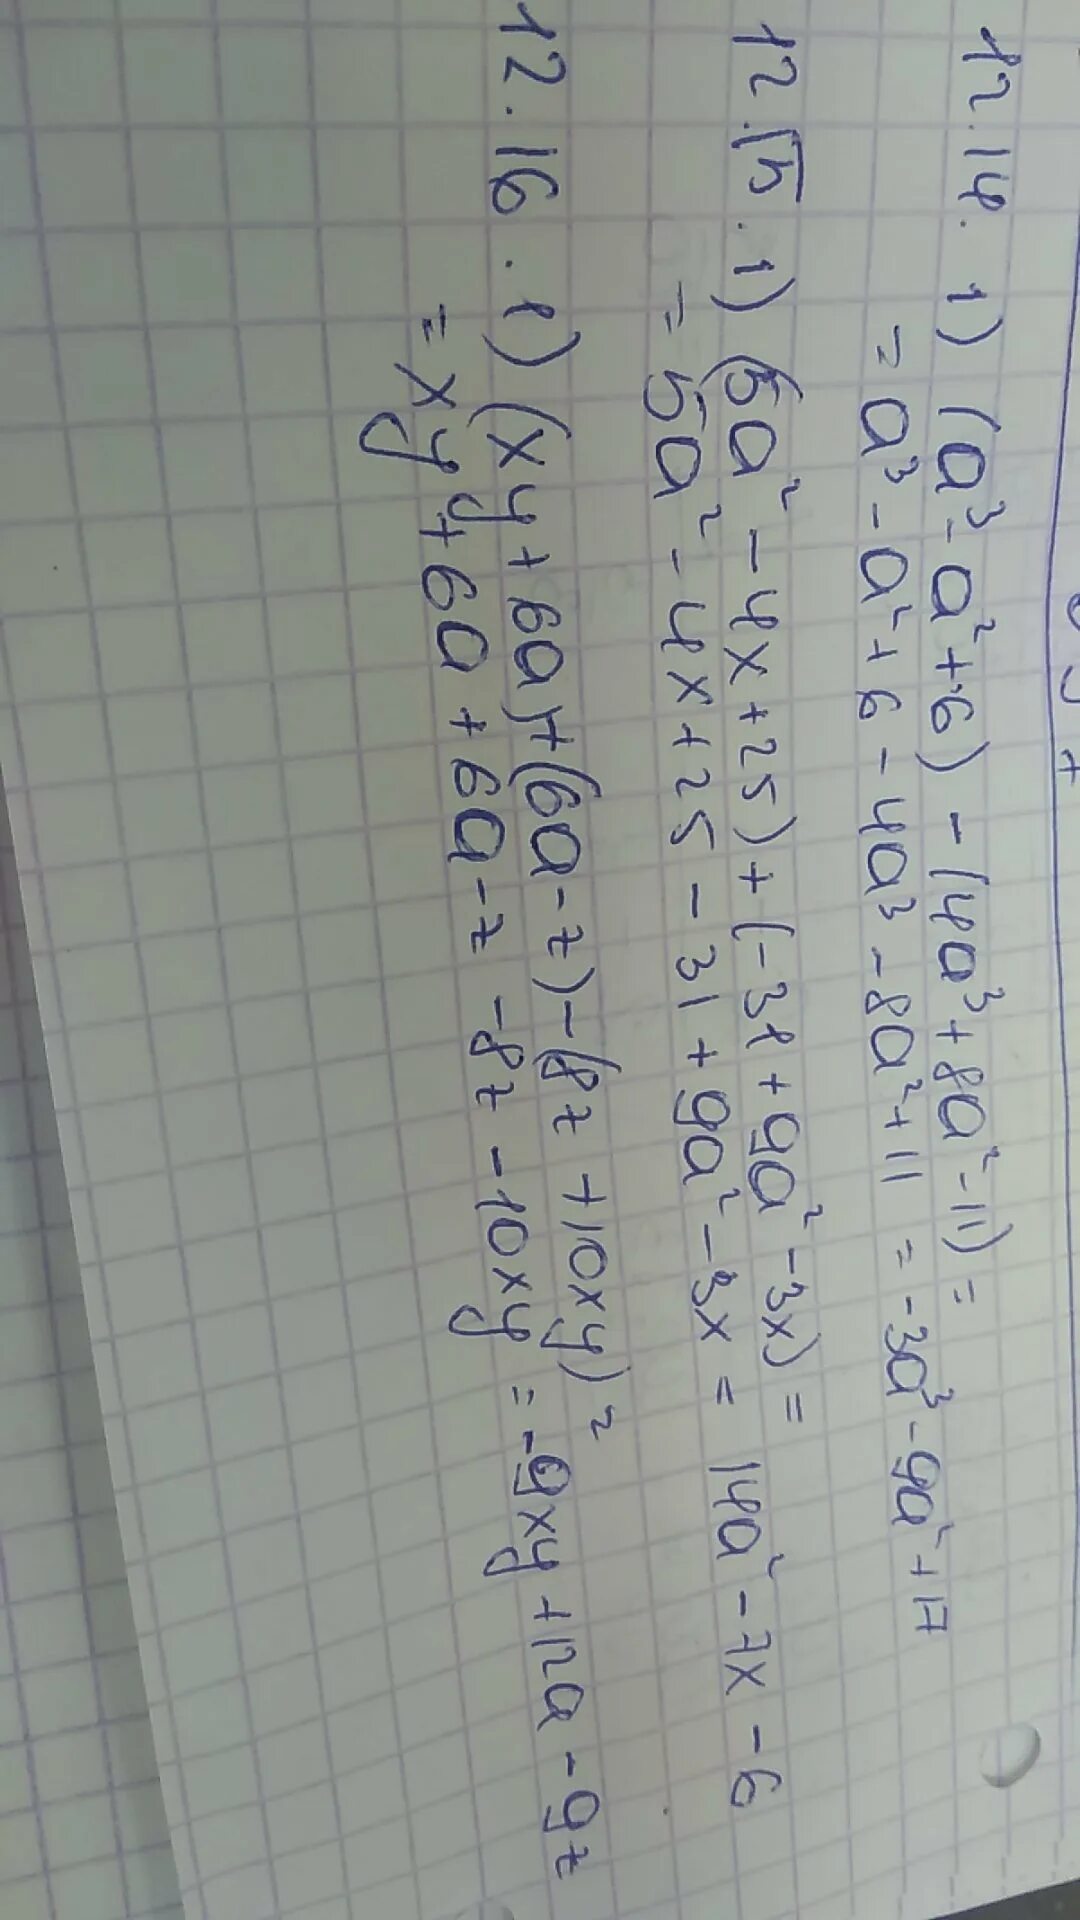 12.14. 1) (a³-a²+6) - (4a³+8a²-11) =
= a³-a²+6-4a³-8a²+11 = -3a³-9a²+17
12.15. 1) (5a²-4x+25) + (-31+9a²-3x) =
= 5a²-4x+25-31+9a²-3x = 14a²-7x-6
12.16. 1) (xy+6a)+(6a-z)-(8z+10xy)²
= xy+6a+6a-z-8z-10xy = -9xy+12a-9z